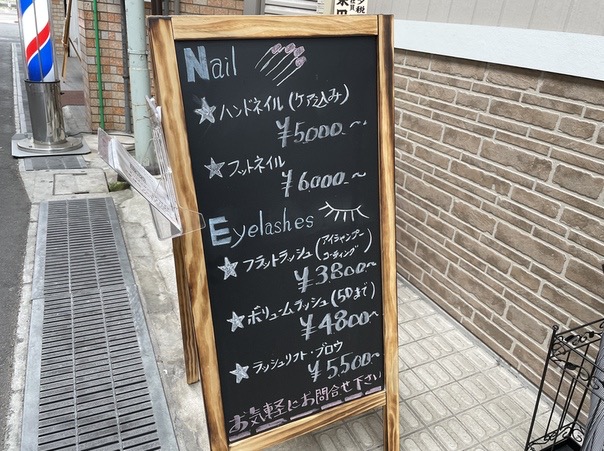 Nail
☆ハンドネイル(ケア込み)
¥5000.~
☆フットネイル
¥6000.~
Eyelashes
☆フラットラッシュ(アイシャンプー
コーティング)
¥3800~
☆ボリュームラッシュ(5Dまで)
¥4800~
☆ラッシュリフト・ブロウ
¥5,500~
お気軽にお問合せ下さい